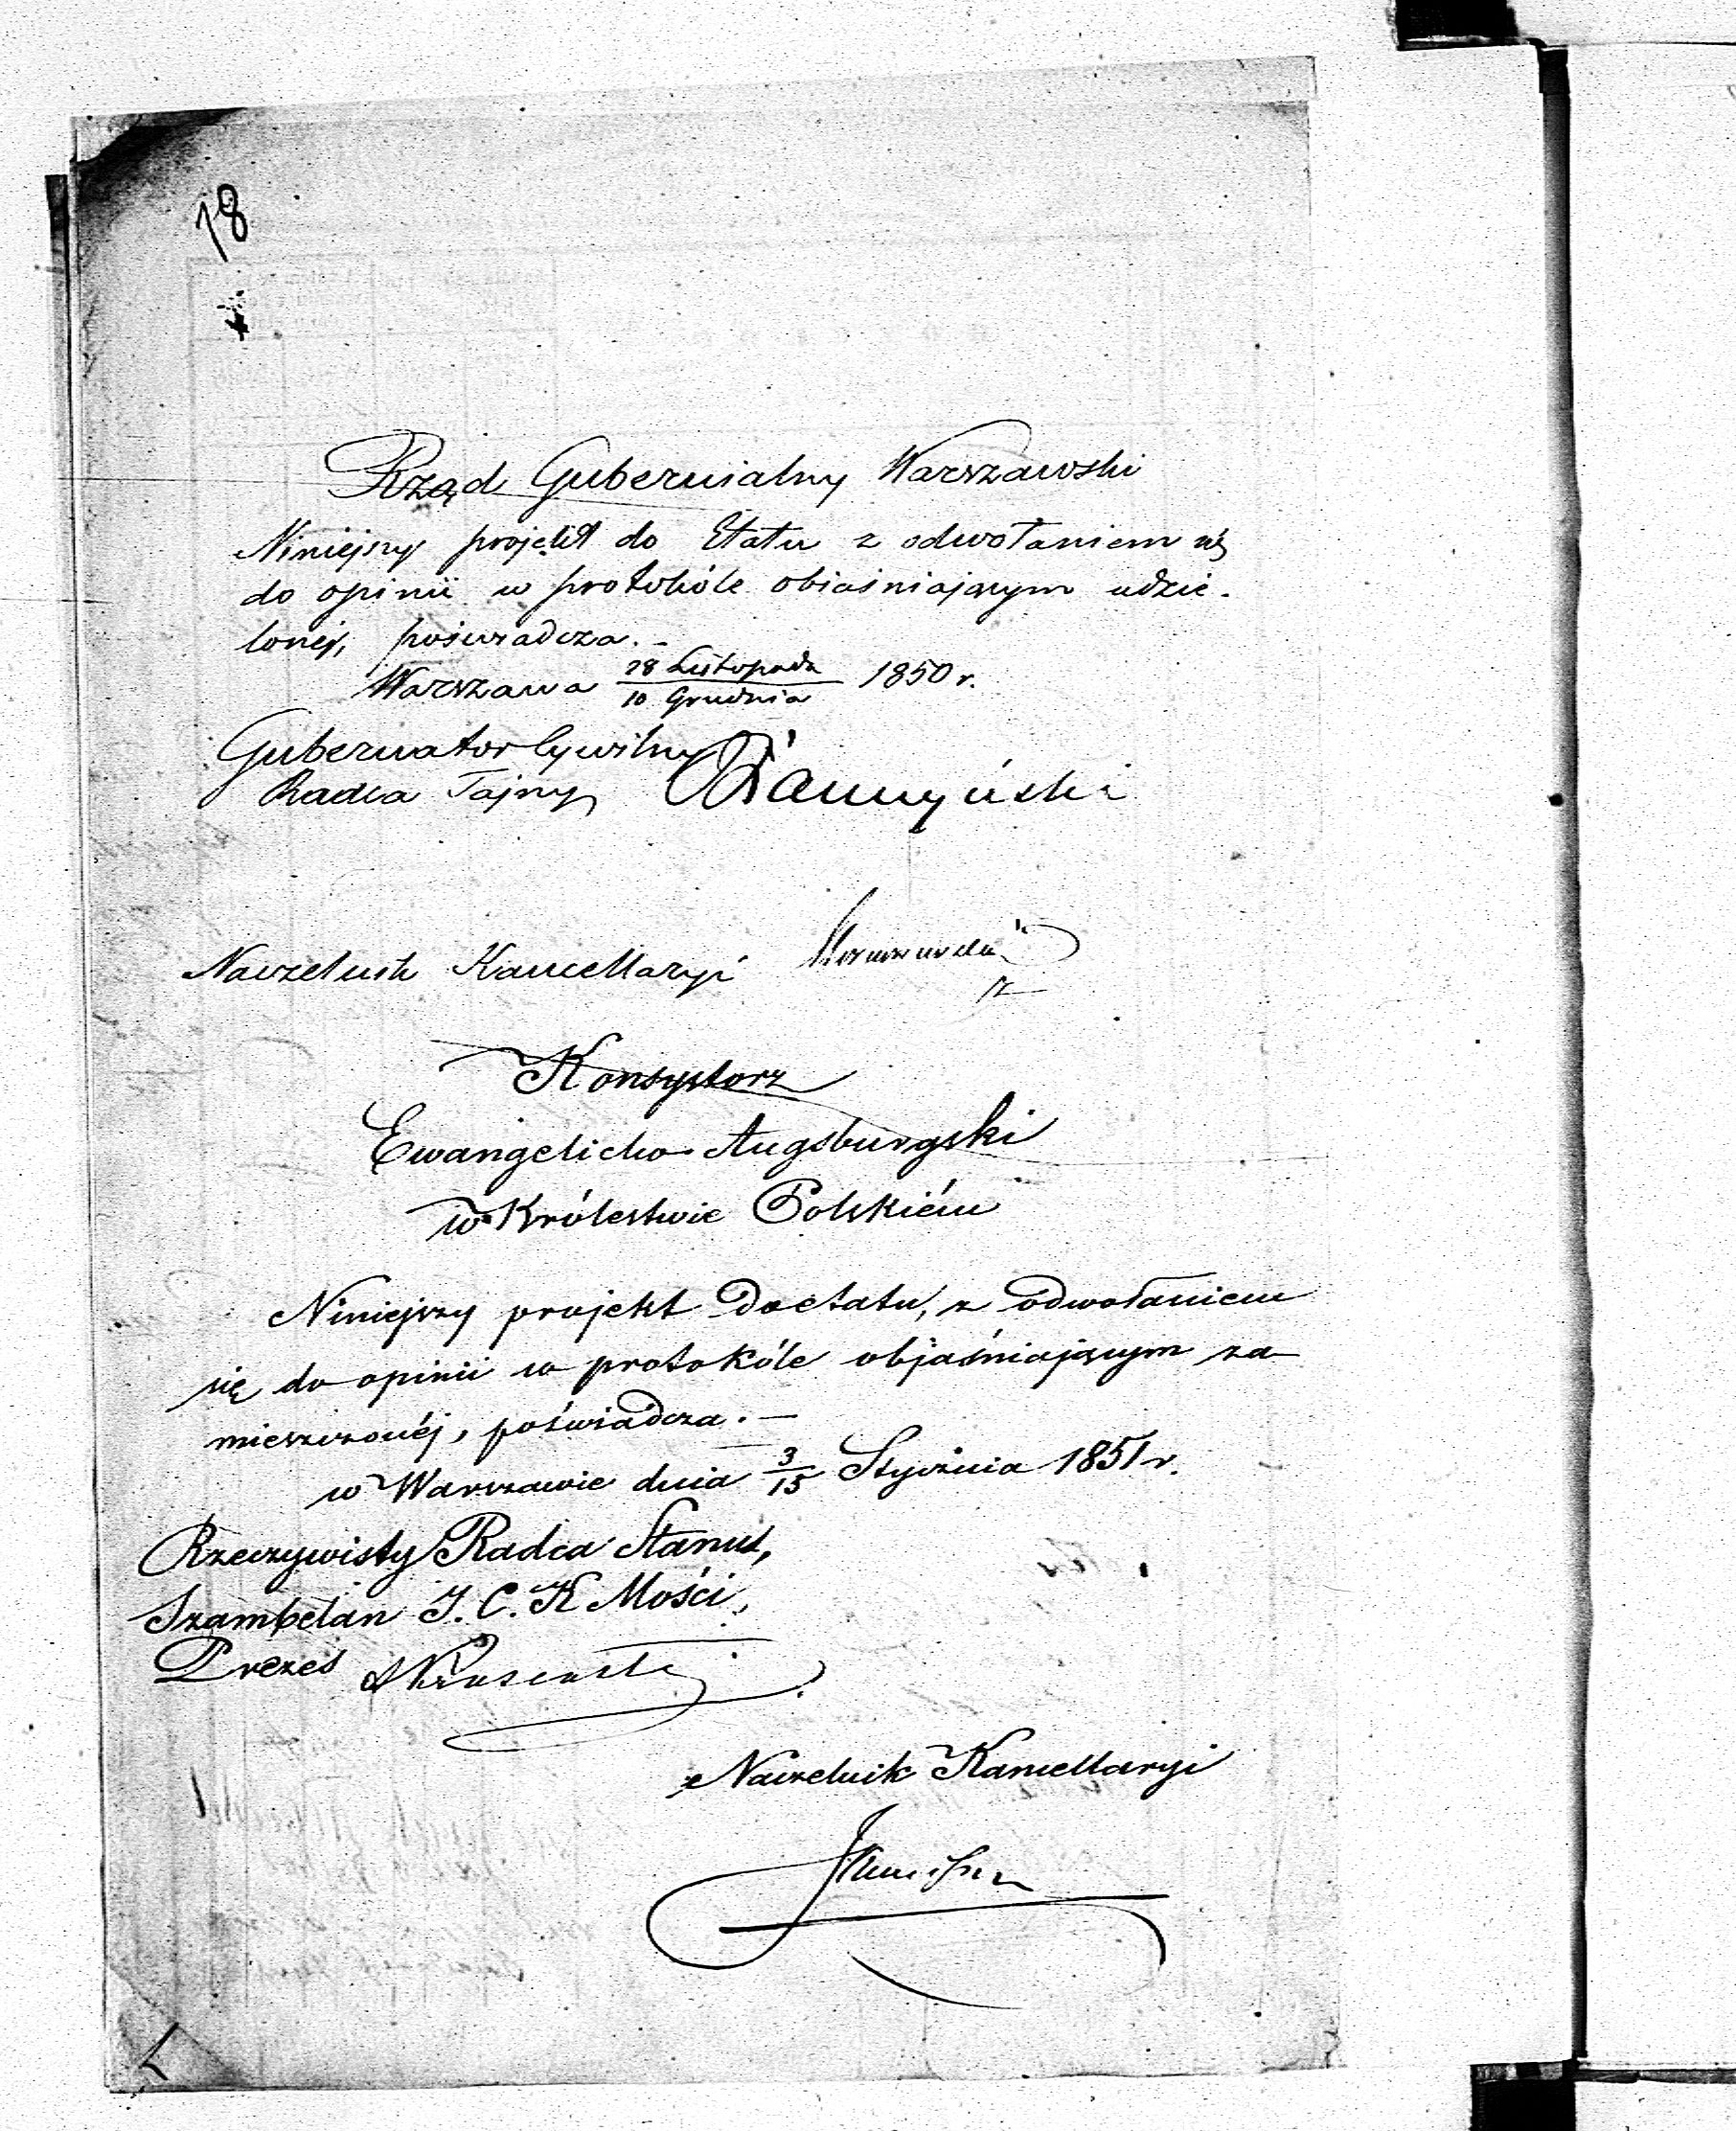 18
Rząd Gubernialny Warszawski
Niniejszy projekt do Etatu z odwołaniem się
do opinii w protokóle obiaśniającym udzie-
lonej, poświadcza. -
Warszawa 28 Listopada / 10 Grudnia 1850 r.
Gubernator Cywilny
Radca Tajny
Naczelnik Kancellaryi
Konsystorz
Ewangelicko-Augsburgski
w Królestwie Polskiém
Niniejszy projekt do etatu, z odwołaniem
się do opinii w protokóle objaśniającym za-
mieszczonéj, poświadcza. —
w Warszawie dnia 3/15 Stycznia 1851 r.
Rzeczywisty Radca Stanu,
Szambelan J. C. K Mości,
Prezes
Naczelnik Kancellaryi